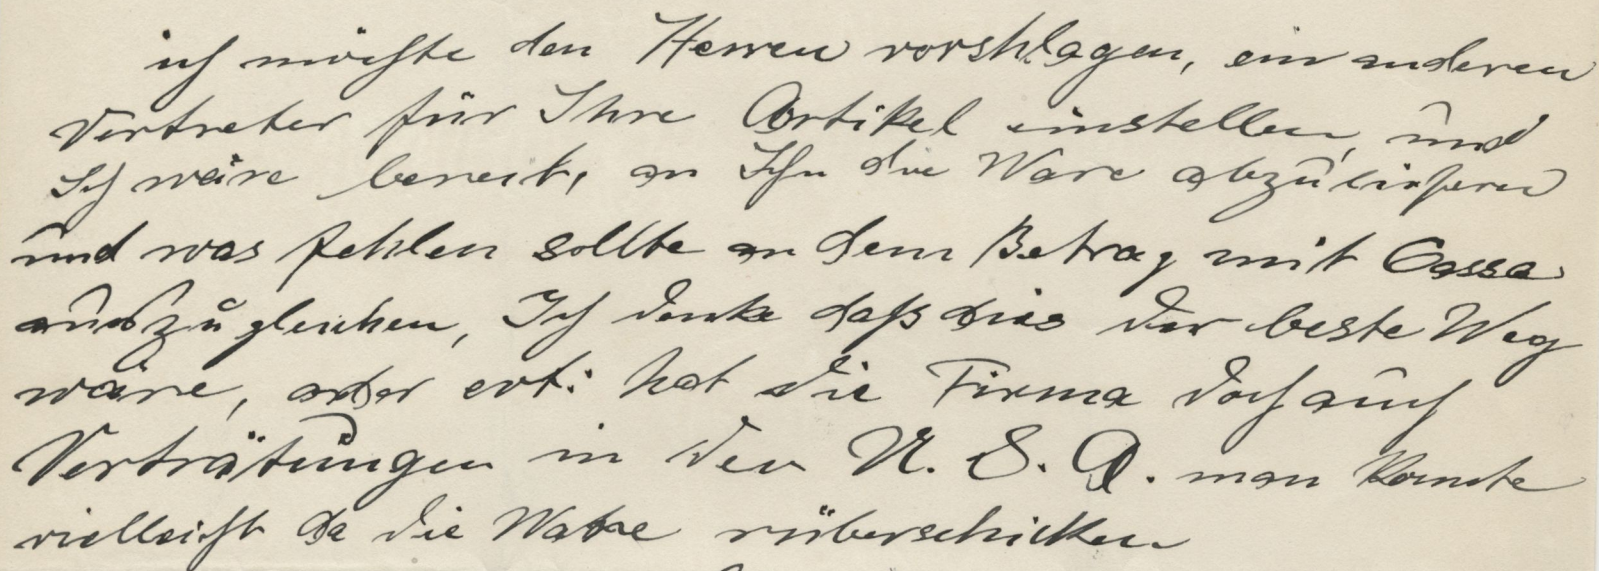 ich möchte den Herren vorshlagen, ein anderen
Vertreter für Ihre Artikel einstellen, und
Ich wäre bereit, an Ihn die Ware abzuliefern
und was fehlen sollte an dem Betrag mit Cassa
auszugleichen, Ich denke daß dies der beste Weg
wäre, oder evt: hat die Firma doch auch
Verträtungen in den U. S. A. man konnte
vielleicht da die Ware rüberschicken